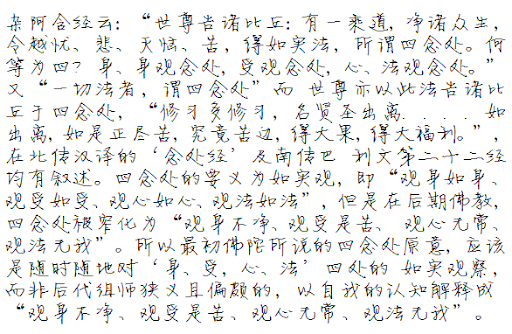 杂阿含经云：“世尊告诸比丘：有一乘道，净诸众生，
令越忧、悲、灭恼、苦，得如实法，所谓四念处。何
等为四？身、身观念处，受观念处，心、法观念处。”
又“一切法者，谓四念处”而 世尊亦以此法告诸比
丘于四念处，“修习多修习，名贤圣出离．．．．．如
出离，如是正尽苦，究竟苦边，得大果，得大福利。”，
在北传汉译的‘念处经’及南传巴 利文第二十二经
均有叙述。四念处的要义为如实观，即“观身如身、
观受如受、观心如心、观法如法”，但是在后期佛教，
四念处被窄化为“观身不净、观受是苦、 观心无常、
观法无我”。所以最初佛陀所说的四念处原意，应该
是随时随地对‘身、受，心、法’四处的 如实观察，
而非后代祖师狭义且偏颇的，以自我的认知解释成
“观身不净、观受是苦、观心无常、观法无我”。